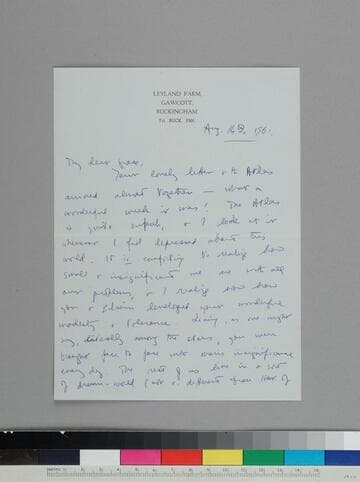 LEYLAND FARM,
GAWCOTT,
BUCKINGHAM.
TEL. BUCK.
Aug.
My dear Grace,
Your lovely letter & the Atlas
arrived almost together — what a
wonderful week it was! The Atlas
is quite superb, & I look at it
whenever I feel depressed about this
world. It is comforting to realize how
small & insignificant we are with all
our problems, & I realize now how
you & developed your wonderful
modesty & tolerance. living, as one might
say, literally among the stars, you were
brought face to face with man's insignificance
every day. The rest of us live in a sort
of dream-world (not a different from that of